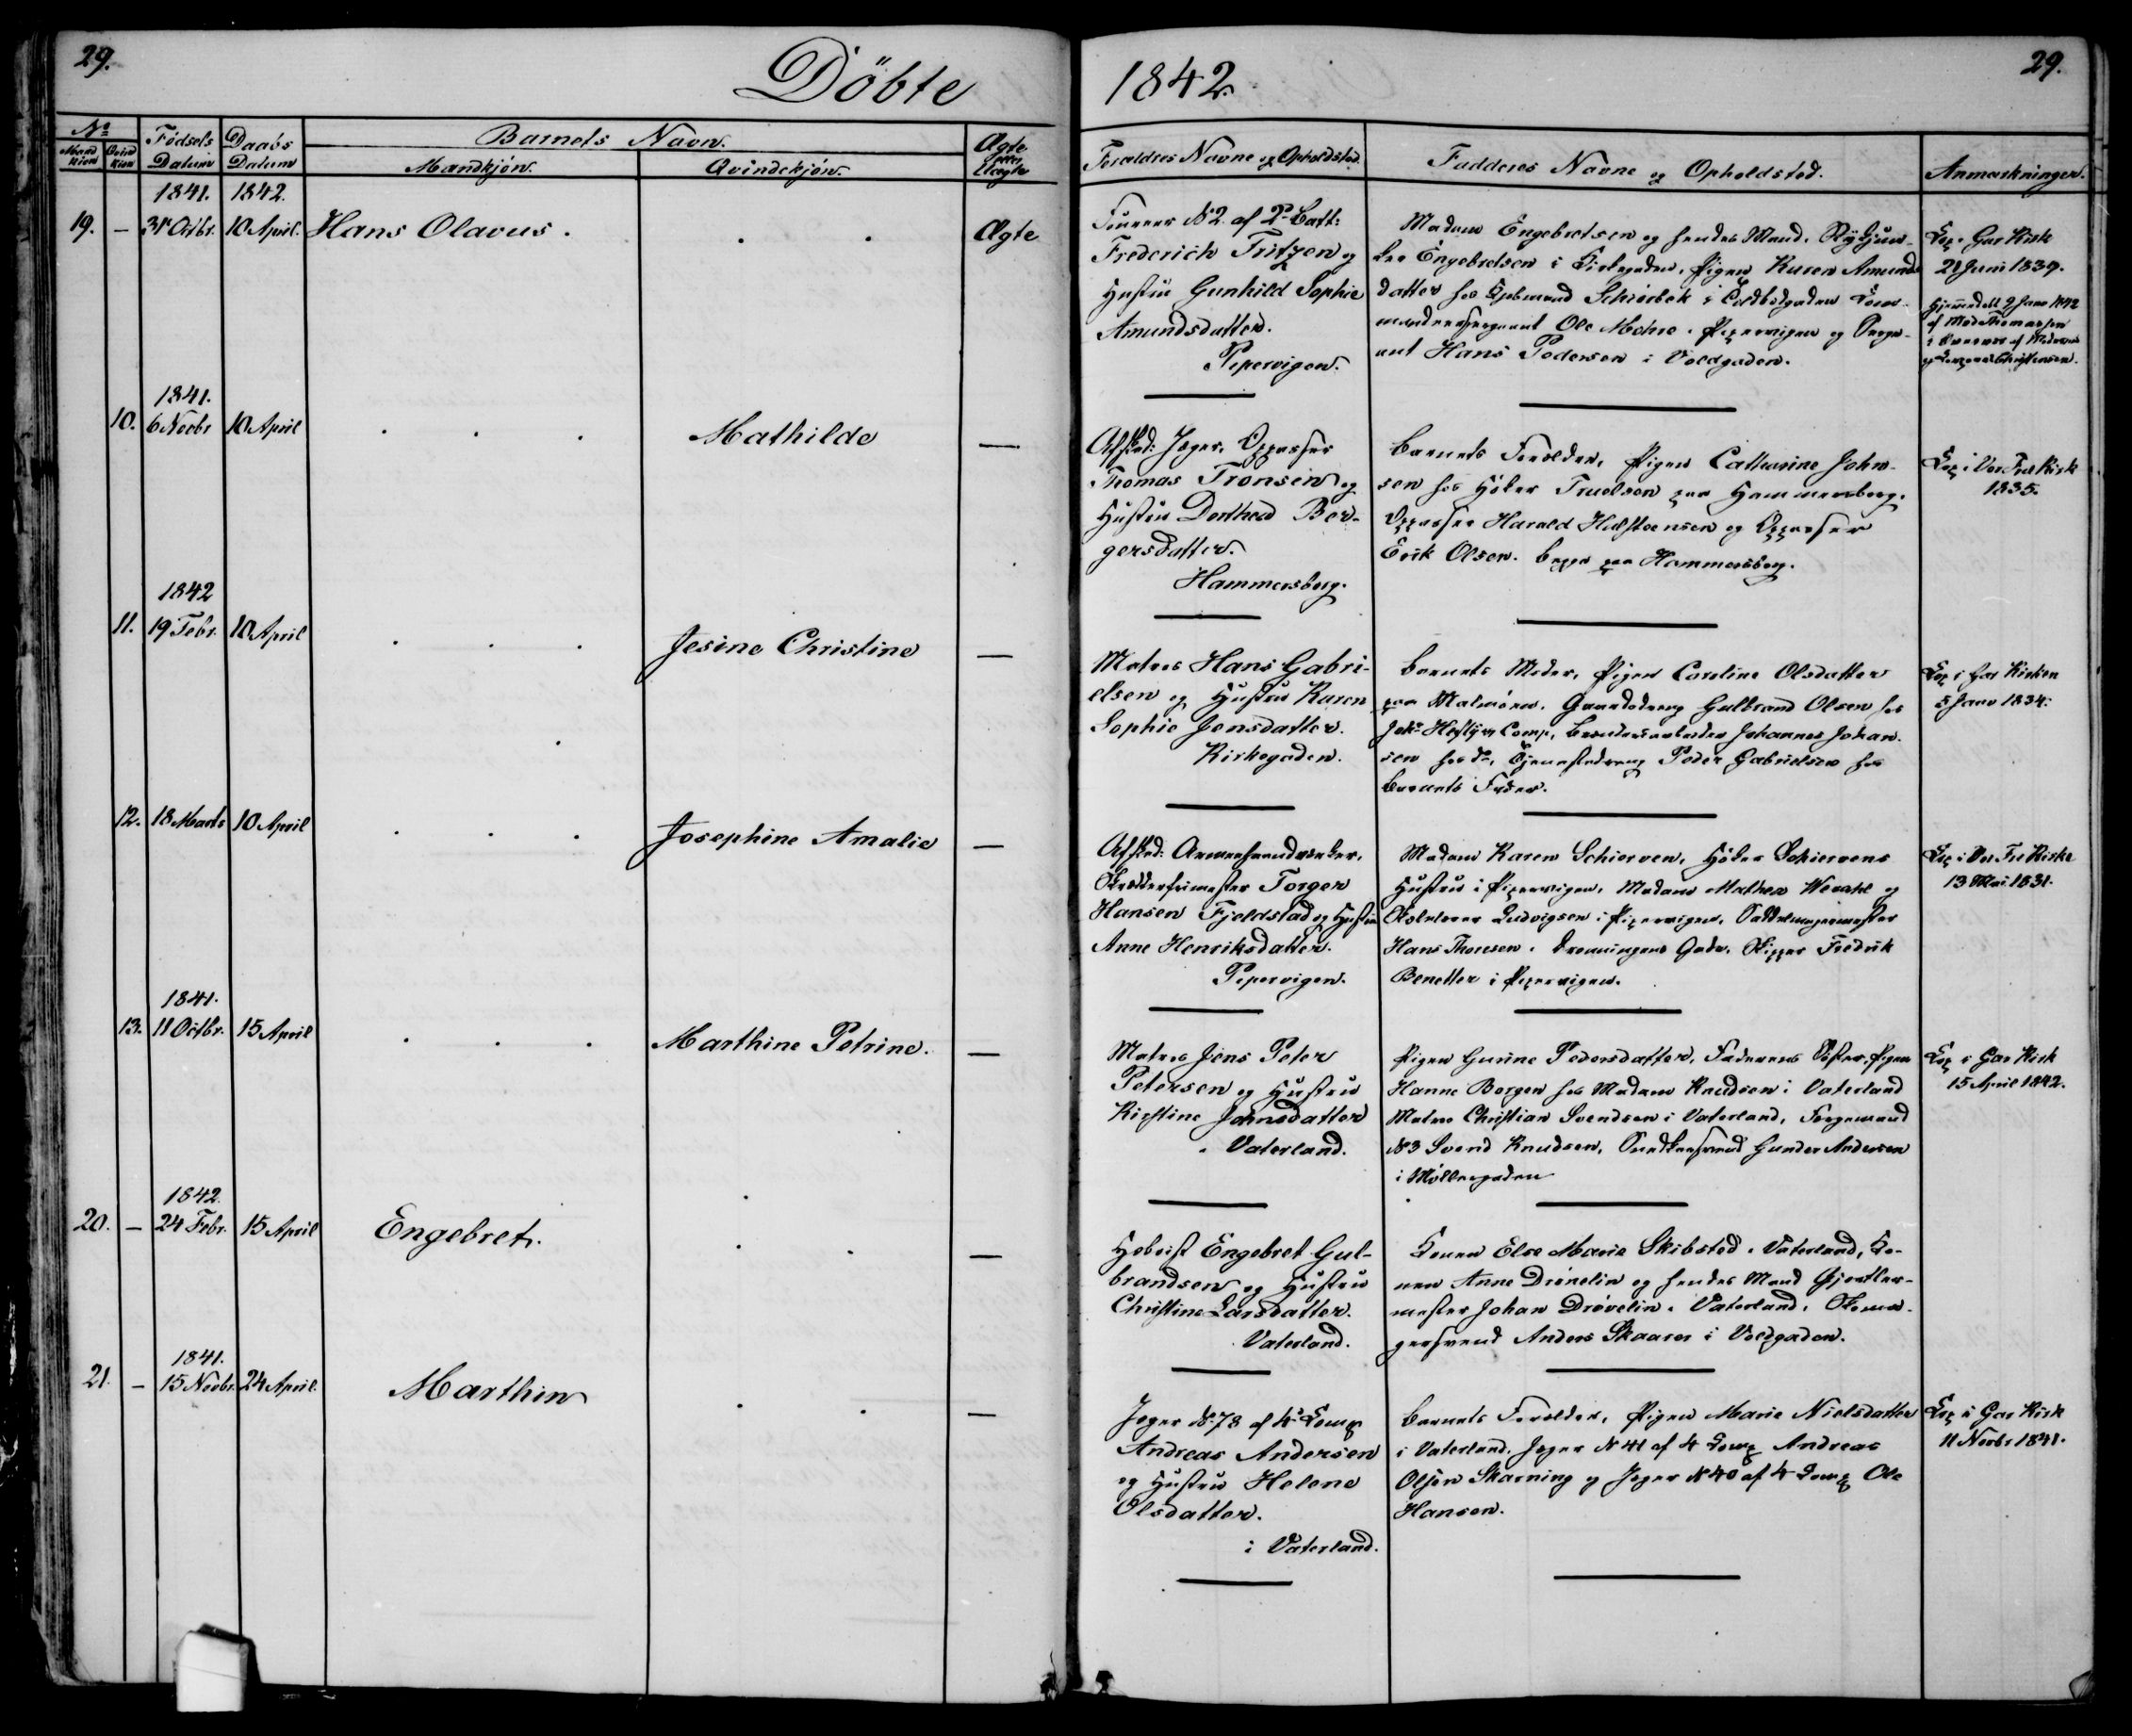 29.
Döbte
1842.
29.
No
Mand
kiøn
Qvind
kiøn
Födsels
Datum
Daabs
Datum
Barnets Navn.
Mandkjön.
Qvindekjön.
Ægte
eller
Uægte
Forældres Navne og Opholdsted.
Fadderes Navne og Opholdsted.
Anmærkninger.
1841. 1842.
19. – 31 Octbr. 10 April. Hans Olavus. Ægte
Fourer No 2 af 2den Batt:
Frederich Fritzen og
Hustru Gunhild Sophie
Amundsdatter.
Pipervigen.
Madam Engebretsen og hendes Mand,
Engebretsen i Kirkegaden, Pigen Karen Amunds
datter hos Kjøbmand Schiørbek i
Ole Mohre i Pipervigen og Serge-
ant Hans Pedersen i Voldgaden.
Cop i Gar Kirk
21 Juni 1839.
Hjemmedøbt 2 Janr 1842
af Mad Thomassen
1841.
10. 6 Novbr 10 April Mathilde —
Afsked: Jæger, Oppasser
Thomas Tronsen og
Hustru Dorthea Bør-
gersdatter.
Hammersborg.
Barnets Forældre, Pigen Catharine John-
sen hos Høker Truelsen paa Hammersborg.
Oppasser Harald Halstensen og Oppasser
Erik Olsen. begge paa Hammersborg.
Cop i Vor Frel Kirk
1835.
1842
11. 19 Febr. 10 April Jesine Christine —
Matros Hans Gabri-
elsen og Hustru Karen
Sophie Jensdatter.
Kirkegaden.
Barnets Moder, Pigen Caroline Olsdatter
paa Malmøen. Gaardsdreng Gulbrand Olsen hos
Comp, Johannes Johan-
sen hos do, Tjenestedreng Peder Gabrielsen hos
Barnets Fader.
Cop i Gar Kirken
5 Janr 1834.
12. 18 Marts 10 April Josephine Amalie —
Afsked:
Torger
Hansen Fjeldstad og Hustru
Anne Henriksdatter.
Pipervigen.
Madam Karen Schierven, Høker Schiervens
Hustru i Pipervigen, Madam Mathea og
Ludvigsen i Pipervigen, Sadelmagermester
Hans Thoresen i Dronningens Gade, Skipper Fredrik
Benetter i Pipervigen.
Cop i Vor Fr Kirke
13 Mai 1831.
1841.
13. 11 Octbr. 15 April Marthine Petrine. —
Matros Jens Peter
Petersen og Hustru
Kirstine Johnsdatter
i Vaterland.
Pigen Gurine Pedersdatter, Faderens Søster, Pigen
Hanne Borgen hos Madam Knudsen i Vaterland
Matros Christian Svendsen i Vaterland,
No 3 Svend Knudsen, Snedkersvend Gunder Andersen
i Møllergaden
Cop i Gar Kirk
15 April 1842.
1842.
20. – 24 Febr. 15 April Engebret. —
Hoboist Engebret Gul-
brandsen og Hustru
Christine Larsdatter.
Vaterland.
Konen Else Marie Skibsted i Vaterland, Ko-
nen Anne Drövelin og hendes Mand Gjørtler-
mester Johan Drövelin i Vaterland, Skoma-
gersvend Anders Skaarer i Voldgaden.
1841.
21. – 15 Novbr. 24 April. Marthin —
Jæger No. 78 af 4de Comp
Andreas Andersen
og Hustru Helene
Olsdatter.
i Vaterland.
Barnets Forældre, Pigen Marie Nielsdatter
i Vaterland. Jæger No 41 af 4 Comp Andreas
Olsen Skarning og Jæger No 40 af 4 Comp Ole
Hansen.
Cop i Gar Kirk
11 Novbr 1841.